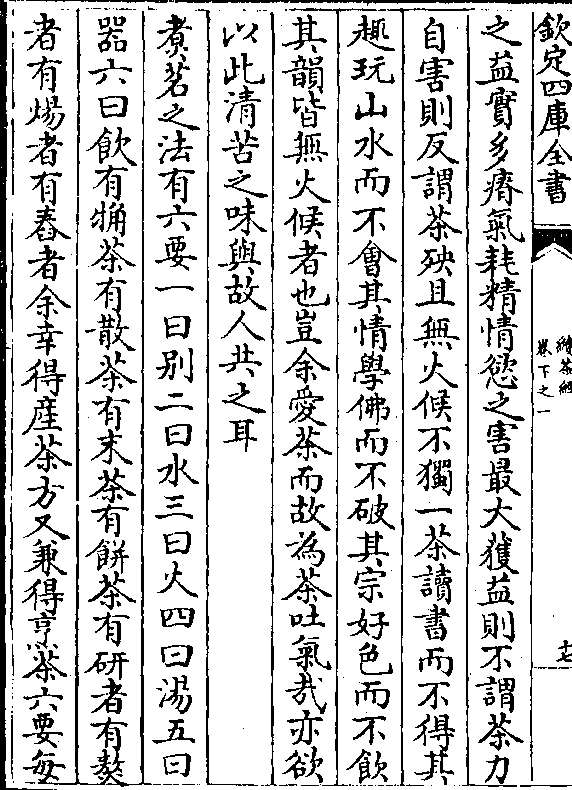 欽定四庫全書
續茶經
卷下之一
十七
之益實多瘠氣耗精情慾之害最大獲益則不謂茶力
自害則反謂茶殃且無火候不獨一茶讀書而不得其
趣玩山水而不會其情學佛而不破其宗好色而不飲
其韻皆無火候者也豈余愛茶而故為茶吐氣哉亦欲
以此清苦之味與故人共之耳
煑茗之法有六要一曰别二曰水三曰火四曰湯五曰
器六曰飲有觕茶有散茶有末茶有餅茶有研者有熬
者有煬者有舂者余幸得產茶方又兼得烹茶六要每